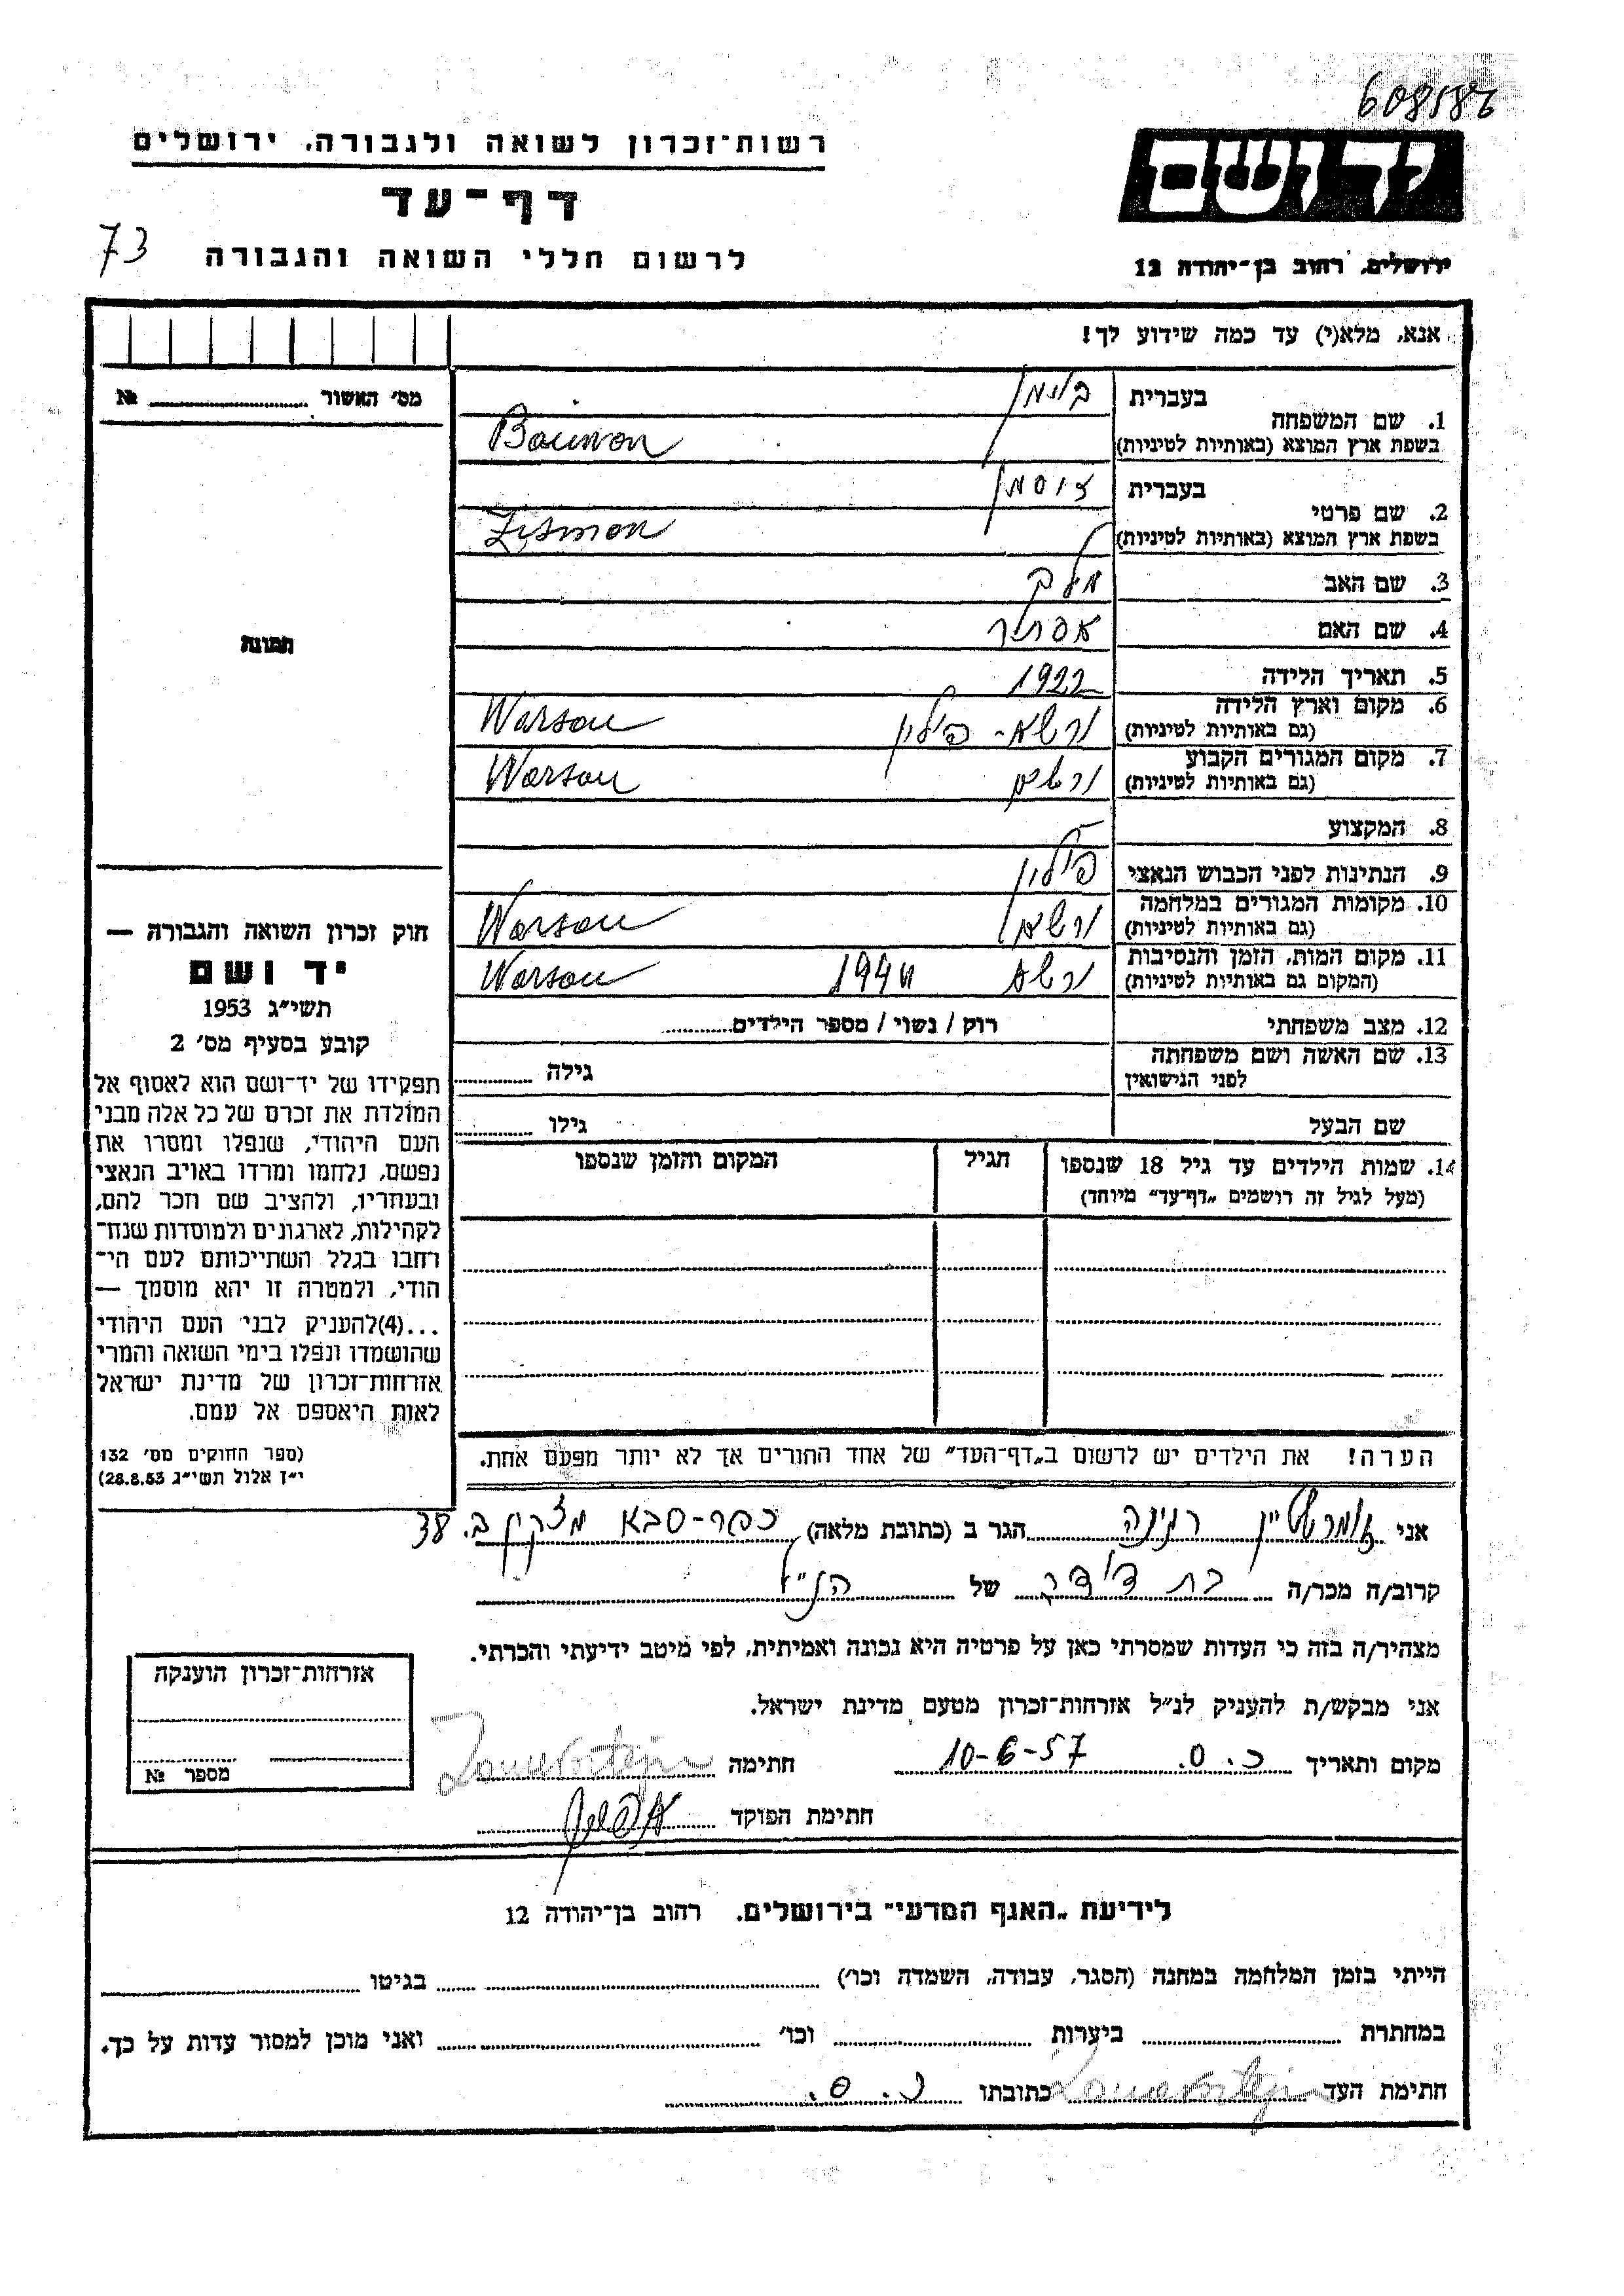 608586
רשות־זכרון לשואה ולגבורה, ירושלים
יד ושם
דף־עד
73
לרשום חללי השואה והגבורה
ירושלים, רחוב בן־יהודה 12
אנא, מלא(י) עד כמה שידוע לך!
מס׳ האשור ........ №
1. שם המשפחה
בעברית
בוימן
בשפת ארץ המוצא (באותיות לטיניות)
Baumon
2. שם פרטי
בעברית
זוסמן
בשפת ארץ המוצא (באותיות לטיניות)
Zusmon
3. שם האב
מלך
4. שם האם
אסתר
תמונה
5. תאריך הלידה
1922
6. מקום וארץ הלידה
(גם באותיות לטיניות)
ורשא - פולין Warsau
7. מקום המגורים הקבוע
(גם באותיות לטיניות)
ורשא Warsau
8. המקצוע
—
9. הנתינות לפני הכבוש הנאצי
פולין
10. מקומות המגורים במלחמה
(גם באותיות לטיניות)
ורשא Warsau
11. מקום המות, הזמן והנסיבות
(המקום גם באותיות לטיניות)
ורשא 1944 Warsau
12. מצב משפחתי
רוק / נשוי / מספר הילדים........
13. שם האשה ושם משפחתה
לפני הנישואין
גילה ........
שם הבעל
גילו ........
14. שמות הילדים עד גיל 18 שנספו
(מעל לגיל זה רושמים „דף־עד” מיוחד)
הגיל
המקום והזמן שנספו
חוק זכרון השואה והגבורה —
יד ושם
תשי״ג 1953
קובע בסעיף מס׳ 2
תפקידו של יד־ושם הוא לאסוף אל
המולדת את זכרם של כל אלה מבני
העם היהודי, שנפלו ומסרו את
נפשם, נלחמו ומרדו באויב הנאצי
ובעוזריו, ולהציב שם וזכר להם,
לקהילות, לארגונים ולמוסדות שנח־
רחבו בגלל השתייכותם לעם הי־
הודי, ולמטרה זו יהא מוסמך —
...(4)להעניק לבני העם היהודי
שהושמדו ונפלו בימי השואה והמרי
אזרחות־זכרון של מדינת ישראל
לאות היאספם אל עמם.
(ספר החוקים מס׳ 132
י״ז אלול תשי״ג 28.8.53)
הערה! את הילדים יש לרשום ב„דף־העד” של אחד ההורים אך לא יותר מפעם אחת.
אני זומרשטיין רגינה הגר ב (כתובת מלאה) כפר-סבא מצקין ב. 38
קרוב/ה מכר/ה בת דודה של הנ״ל
מצהיר/ה בזה כי העדות שמסרתי כאן על פרטיה היא נכונה ואמיתית, לפי מיטב ידיעתי והכרתי.
אני מבקש/ת להעניק לנ״ל אזרחות־זכרון מטעם מדינת ישראל.
מקום ותאריך כ.ס. 10-6-57 חתימה
חתימת הפוקד
אזרחות־זכרון הוענקה
מספר №
לידיעת „האגף המדעי” בירושלים, רחוב בן־יהודה 12
הייתי בזמן המלחמה במחנה (הסגר, עבודה, השמדה וכו׳) ........ בגיטו ........
במחתרת ........ ביערות ........ וכו׳ ........ ואני מוכן למסור עדות על כך.
חתימת העד ........ כתובתו כ.ס.